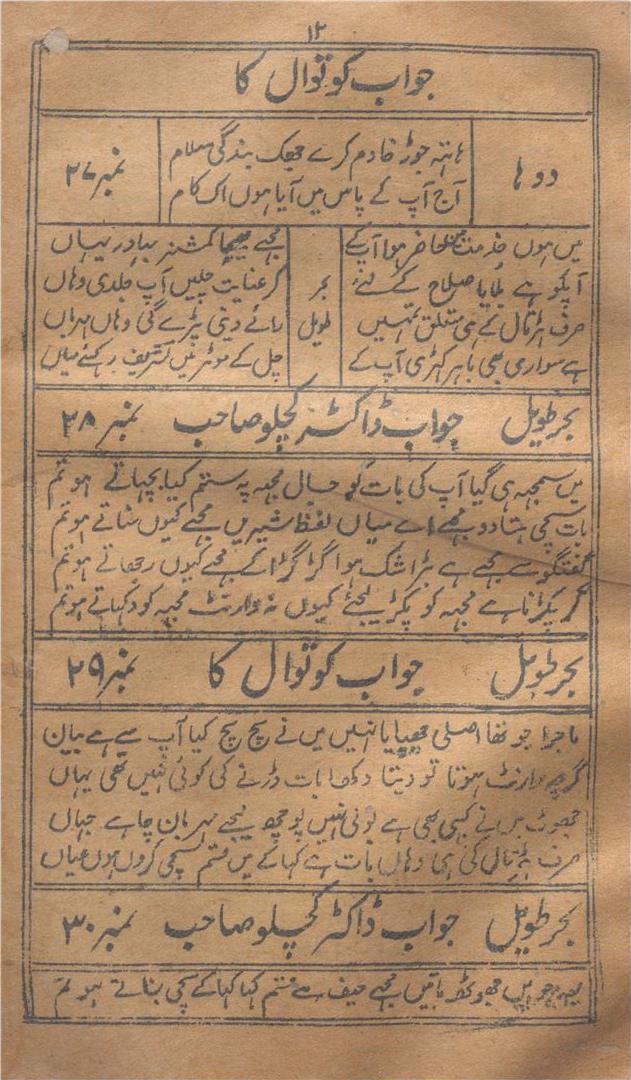 ۱۲
جواب کوتوال کا
دوہا
ہاتھ جوڑ خادم کرے جھک بندگی سلام
آج آپ کے پاس میں آیا ہوں اک کام
نمبر ۲۷
بحر طویل
میں ہوں خدمت میں حاضر ہوا آپکے
مجھے بھیجا کمشنر بہادر یہاں
آپکو ہے بلایا صلاح کے لئے
کر عنایت چلیں آپ جلدی وہاں
صرف ہڑتال کے ہی متعلق تمہیں
رائے دینی پڑے گی وہاں
ہے سواری بھی باہر کھڑی آپ کے
چل کے موٹر میں تشریف رکھئے میاں
بحر طویل جواب ڈاکٹر کچلو صاحب نمبر ۲۸
میں سمجہہ ہی گیا آپ کی بات کو جال مجہہ پہ ستم کیا بچہاتے ہو تم
بات سچی بتا دو مجھے اے میاں لفظ شیریں مجھے کیوں سناتے ہو تم
گفتگو سے مجھے ہے بڑا شک ہوا گڑ گڑا کے مجھے کیوں رجھاتے ہو تم
گر پکڑنا ہے مجہہ کو پکڑ لیجئے کیوں نہ وارنٹ مجہہ کو دکہاتے ہو تم
بحر طویل جواب کوتوال کا نمبر ۲۹
ماجرا جو تھا اصلی چھپایا نہیں میں نے سچ سچ کیا آپ سے ہے بیان
گرچہ وارنٹ ہوتا تو دیتا دکھا بات ڈرنے کی کوئی نہیں تھی یہاں
جھوٹ میں نے کبھی بھی ہے بولی نہیں پوچھ لیجے مہربان چاہے جہاں
صرف ہڑتال کی ہی وہاں بات ہے کہا کے میں قسم سچی کروں ہوں عیاں
بحر طویل جواب ڈاکٹر کچلو صاحب نمبر ۳۰
باتیں مجھے حیف ہے قسم کہا کہا کے سچی بناتے ہو تم